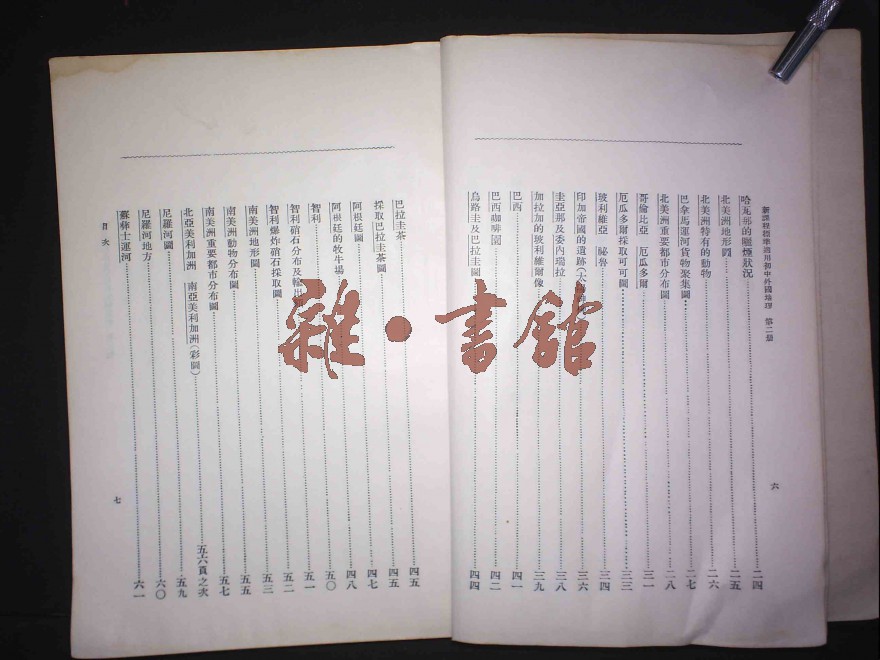 新課程標準適用初中外國地理 第二册
六
哈瓦那的曬煙狀況 二四
北美洲地形圖 二五
北美洲特有的動物 二六
巴拿馬運河貨物聚集圖 二七
北美洲重要都市分布圖 二八
哥倫比亞 厄瓜多爾 三一
厄瓜多爾採取可可圖 三三
玻利維亞 祕魯 三四
印加帝國的遺跡 三六
圭亞那及委內瑞拉 三八
加拉加的玻利維爾像 三九
巴西 四一
巴西咖啡園 四二
烏路圭及巴拉圭圖 四四
巴拉圭茶 四五
採取巴拉圭茶圖 四五
阿根廷圖 四七
阿根廷的牧牛場 四八
智利 五〇
智利硝石分布及輸出 五一
智利爆炸硝石採取圖 五二
南美洲地形圖 五三
南美洲動物分布圖 五五
南美洲重要都市分布圖 五七
北亞美利加洲 南亞美利加洲(彩圖) 五六頁之次
尼羅河圖 五九
尼羅河地方 六〇
蘇彝士運河 六一
目次
七
雜·書館